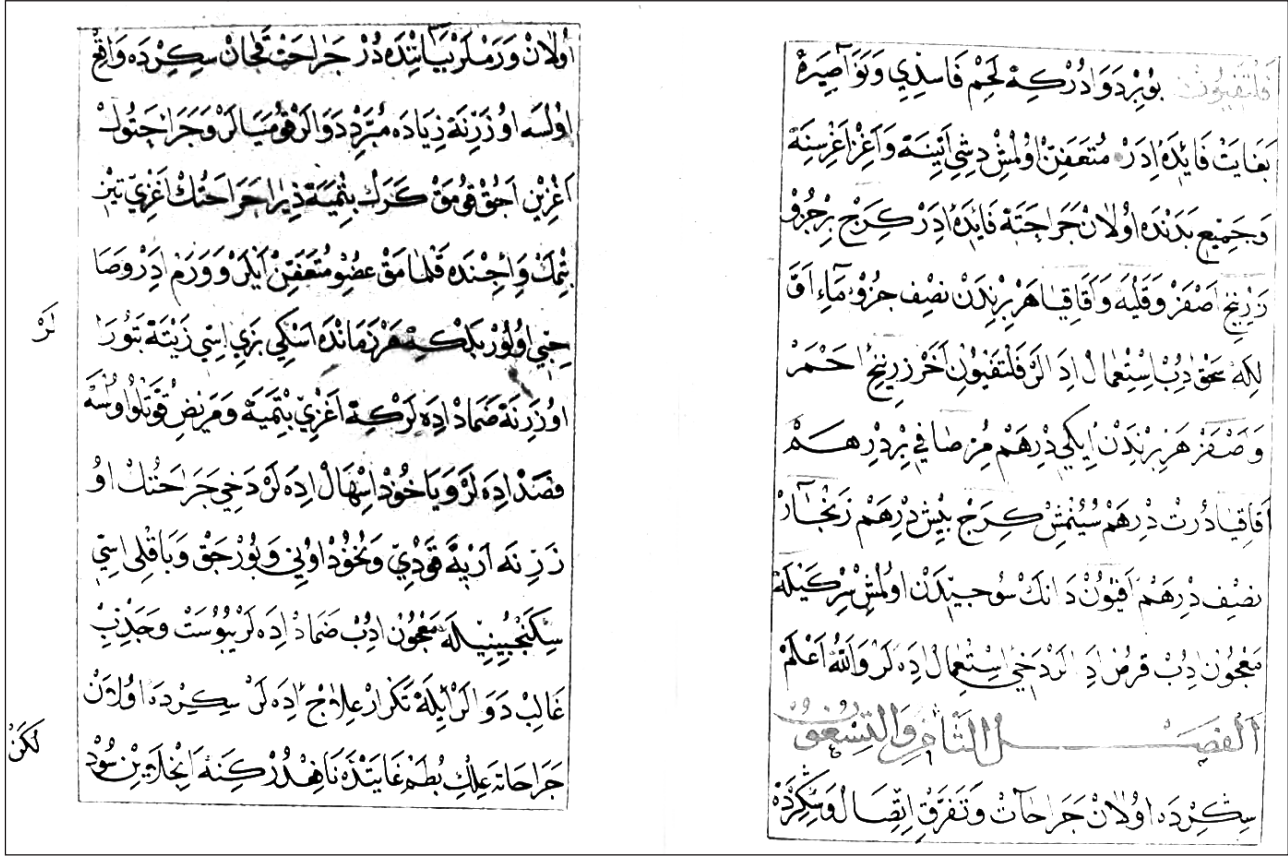 فلتفيون بو بردوادركه لحم فاسدي و نواصيره
بغايت فائده ادر متعفن اولمش دش اتينه و اغز اغرسنه
و جميع بدنده اولان جراحته فائده ادر كرج بر جزو
زرنيخ اصفر و قليه و اقاقيا هر برندن نصف جزو ماء اق
لله سحق ادب استعمال اده لر فلتفيون اخر زرنيخ احمر
و صفر هر برندن ايكي درهم مر صافي بر درهم
اقاقيا درت درهم سينمش كرج بيش درهم زنجار
نصف درهم افيون دانك سوجيدن اولمش سركيله
معجون ادب قرص اده لر دخي استعمال اده لر والله اعلم
الفصل الثامن والتسعون
سكرده اولان جراحات و تفرق اتصال و سكرده
اولان ورملر بياننده در جراحت قچان سكرده واقع
اولسه اوزرنه زياده مبرد دوالر قوميالر و جراحتوك
اغزين اچق قومق كرك بتميه زيرا جراحتك اغزي تيز
بتمك و اچنده قلمامق عضو متعفن ايلر و ورم ادر و صا
لر
حبي اولور بلكه هر زمانده اسكي بزي اسي زيته بتورا
اوزرنه ضماد اده لر كه اغزي بتميه و مريض قوتلو اولسه
فصد اده لر و ياخود اسهال اده لر دخي جراحتك او
زرنه اربه قودي و نخود اوني و بورجق و باقلي اسي
سكنجبينيله معجون ادب ضماد اده لر يبوست و جذب
غالب دوالر ايله تكرار علاج اده لر سكرده اولان
لكن
جراحاته علك بطم غايتده نافعدر كنه انجلاين سود